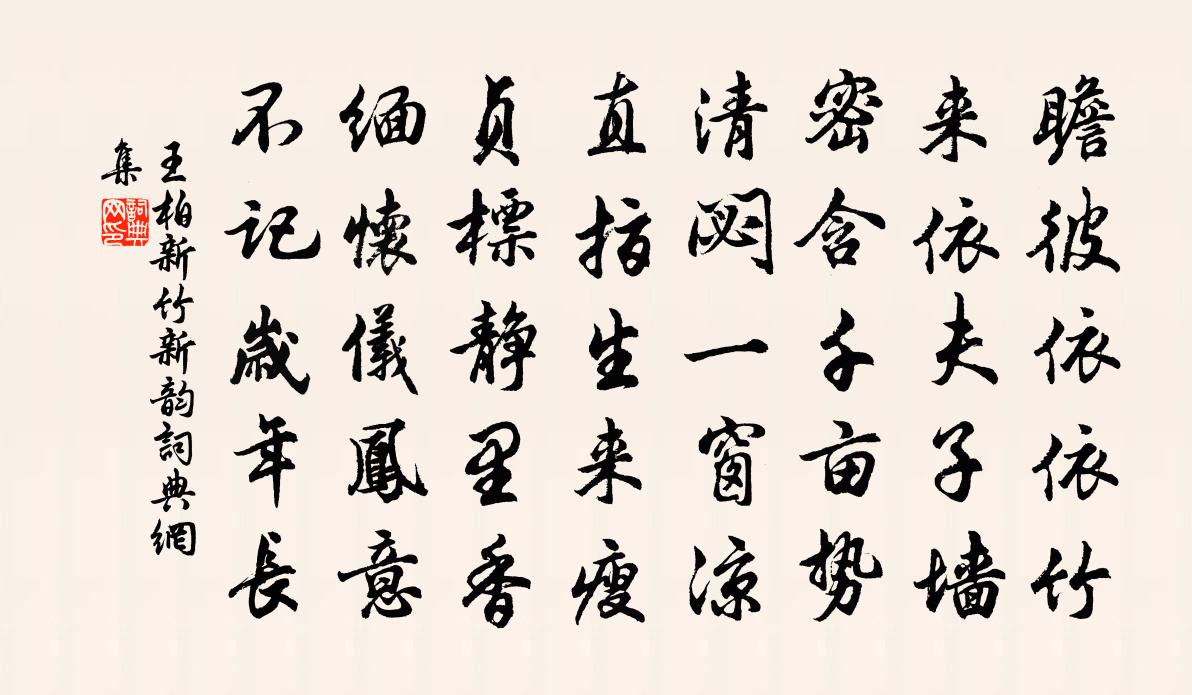 瞻彼依依竹
来依夫子墙
密含千亩势
清閟一窗凉
直指生来瘦
贞標静里香
缅懷儀鳳意
不记歲年長
王柏新竹新韵詞典網
集
詞典
网印